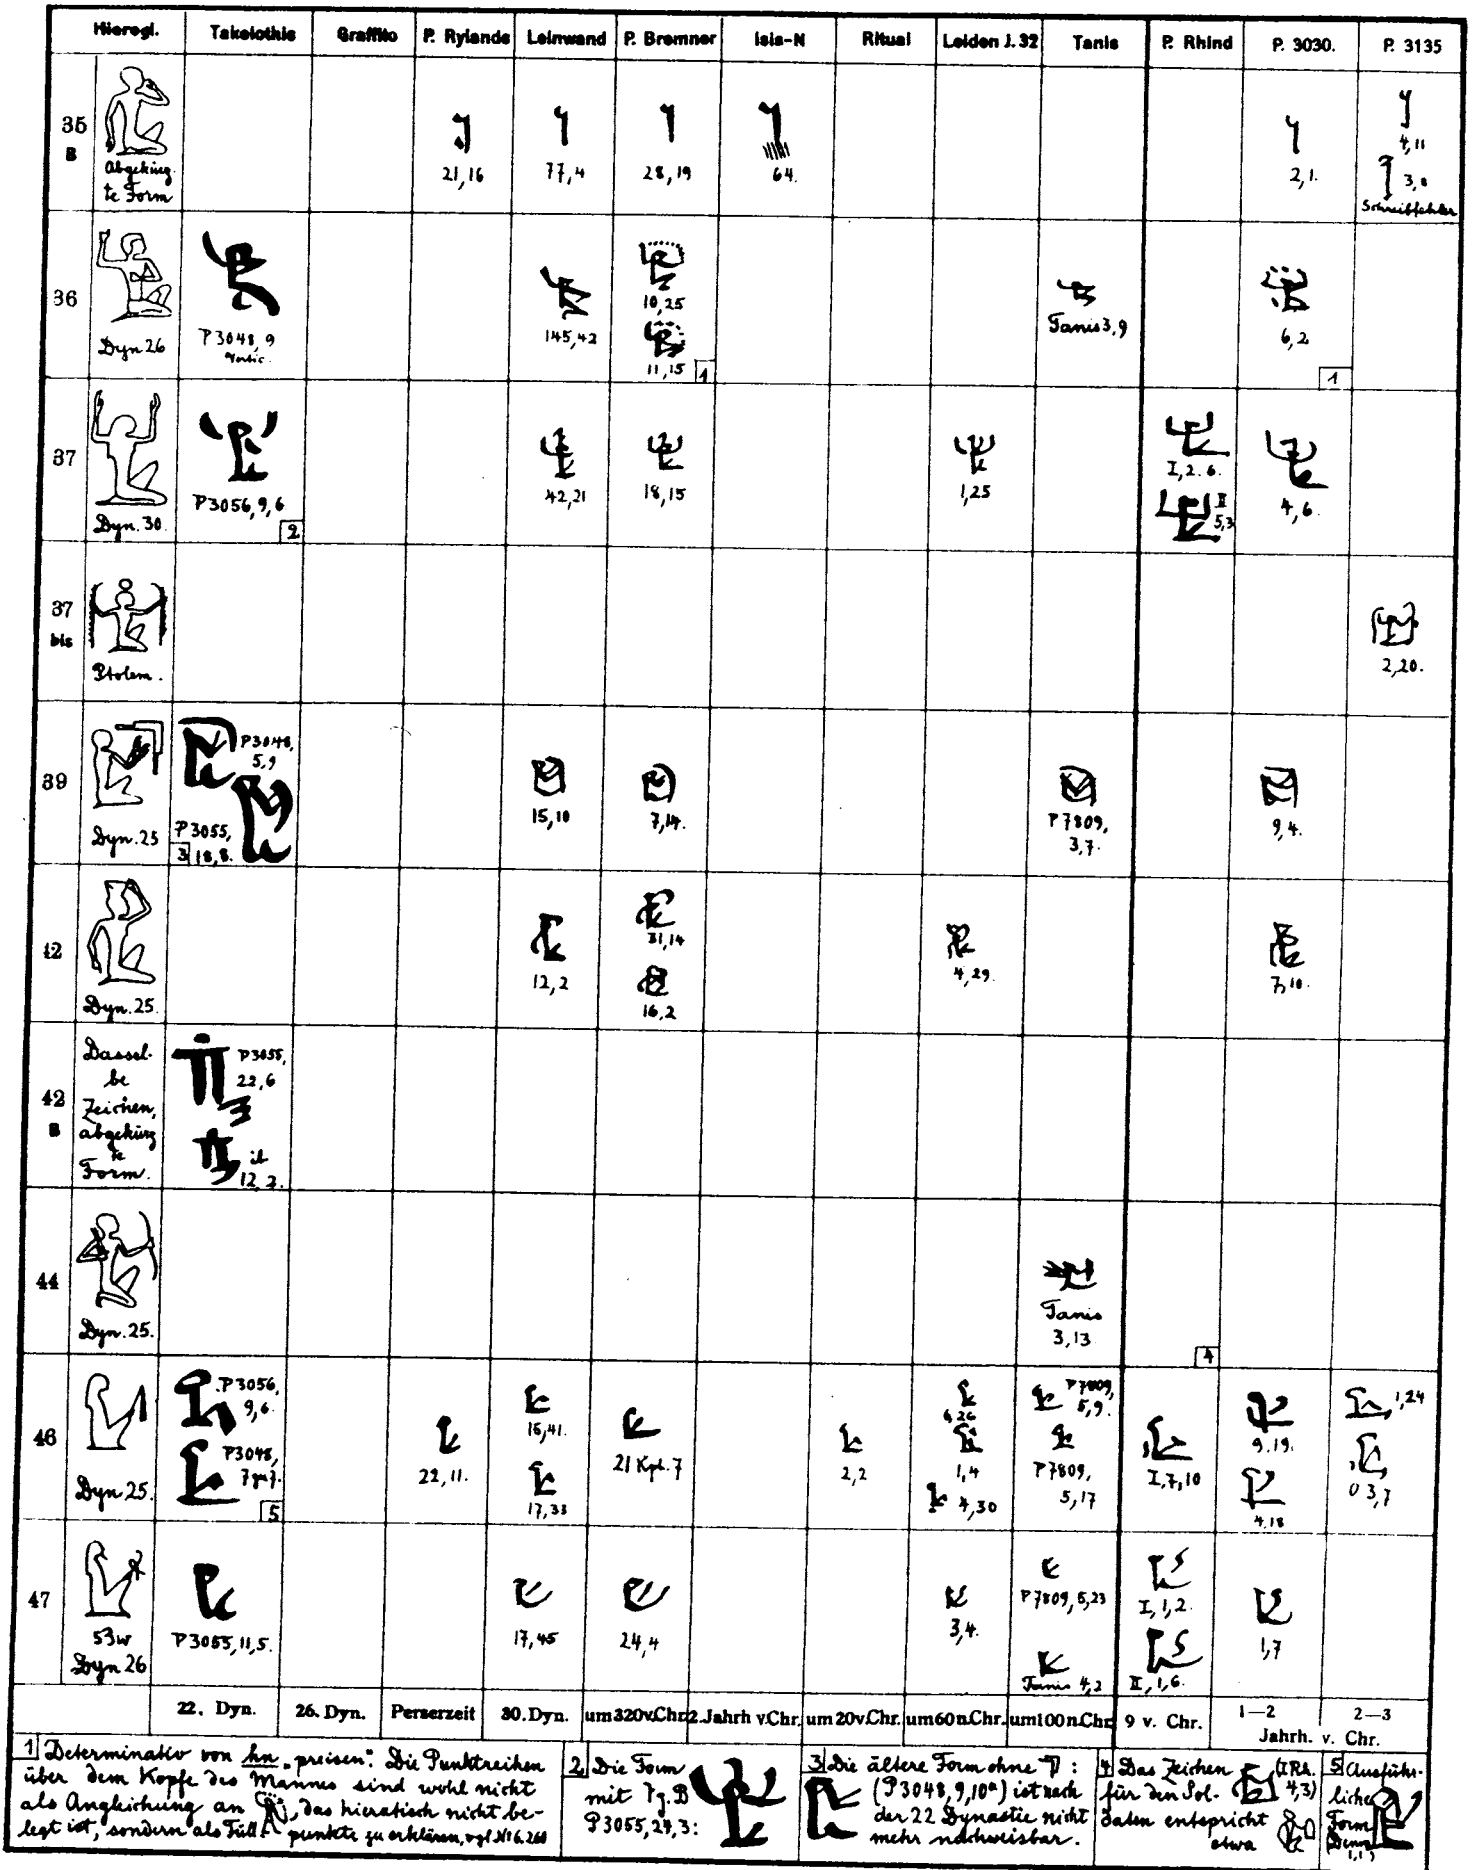 Hierogl. Takelothis Graffito P. Rylands Leinwand P. Bremner Isis-N Ritual Leiden J. 32 Tanis P. Rhind P. 3030. P. 3135
35 B
Abgekürz-
te Form
21,16 77,4 28,19 64. 2,1. 4,11
3,8
Schreibfehler
36
Dyn 26
P 3048, 9
145,42
10,25
11,15 1
Tanis 3,9
6,2
1
37
Dyn. 30.
P 3056, 9, 6
2
42,21 18,15 1,25
I, 2. 6.
II 5,3
4,6.
37 bis
Ptolem.
2,20.
39
Dyn. 25
P 3048, 5,9
P 3055, 18,8.
3
15,10 7,14.
P 7809, 3,7.
9,4.
42
Dyn. 25.
12,2
31,14
16,2
4,29.
7,10.
42 B
Dassel-
be
Zeichen,
abgekürz
te
Form.
P 3055, 22,6
12,2.
44
Dyn. 25.
Tanis 3,13
4
46
Dyn 25.
P 3056, 9,6.
P 3048,
5
22,11.
17,33
21 Kpl. 7
2,2
1,4
4,30
P 7809, 5,9.
P 7809, 5,17
I, 7, 10
9.19.
4,18
1,24
3,7
47
53w
Dyn 26
P 3055, 11, 5.
17,45 24,4 3,4.
P 7809, 5,23
Tanis 4,2
I, 1, 2.
II, 1, 6.
1,7
22. Dyn. 26. Dyn. Perserzeit 30. Dyn. um 320 v. Chr. 2. Jahrh v. Chr. um 20 v. Chr. um 60 n. Chr. um 100 n. Chr. 9 v. Chr. 1—2 2—3
Jahrh. v. Chr.
1 Determinativ von hn „preisen“. Die Punktreihen
über dem Kopfe des Mannes sind wohl nicht
als Angleichung an , das hieratisch nicht be-
legt ist, sondern als Füll- punkte zu erklären, vgl
2 Die Form
mit
P 3055, 27, 3:
3 Die ältere Form ohne :
(P 3048, 9, 10a) ist nach
der 22 Dynastie nicht
mehr nachweisbar.
4 Das Zeichen (I Rh. 4,3)
für den Sol-
daten entspricht
etwa
5 Ausführ-
liche
Form